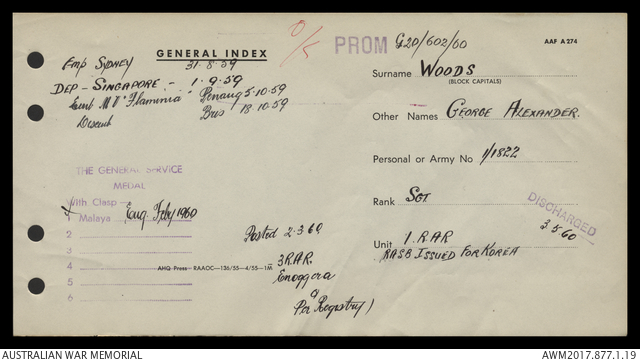 GENERAL INDEX
O/S
PROM G20/602/60
AAF A 274
Emp SYDNEY 31.8.59
DEP - SINGAPORE - 1.9.59
Emb M V "Flaminia" Penang 5.10.59
Disemb Bris 18.10.59
Surname WOODS
(BLOCK CAPITALS)
Other Names GEORGE ALEXANDER.
Personal or Army No 1/1822
Rank SGT
DISCHARGED
3.5.60
Unit 1.RAR
RASB ISSUED FOR KOREA
THE GENERAL SERVICE
MEDAL
With Clasp
1 Malaya Eng. 1960
2
3
4
5
6
Posted 2.3.60
3RAR
Enoggera
Per Registry)
AHQ Press—RAAOC—136/55—4/55—1M
AUSTRALIAN WAR MEMORIAL
AWM2017.877.1.19